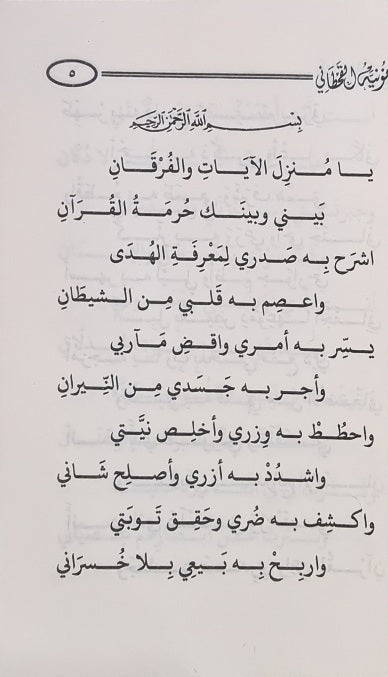 نونية القحطاني
٥
بسم الله الرحمن الرحيم
يا مُنزِلَ الآيَاتِ والفُرْقَانِ
بَيني وبينَك حُرمَةُ القُرَآنِ
اشرَح بِه صَدري لِمَعْرِفَةِ الهُدَى
واعصِم به قَلبي مِن الشيطَانِ
يسِّر به أمري واقضِ مَآربي
وأجر به جَسَدي مِن النِّيرانِ
واحطُطْ به وِزري وأخلِص نيَّتي
واشدُدْ به أزري وأصلِح شَاني
واكشِف به ضُري وحَقِق تَوبَتي
واربِحْ بِه بَيعِي بِلا خُسرَاني